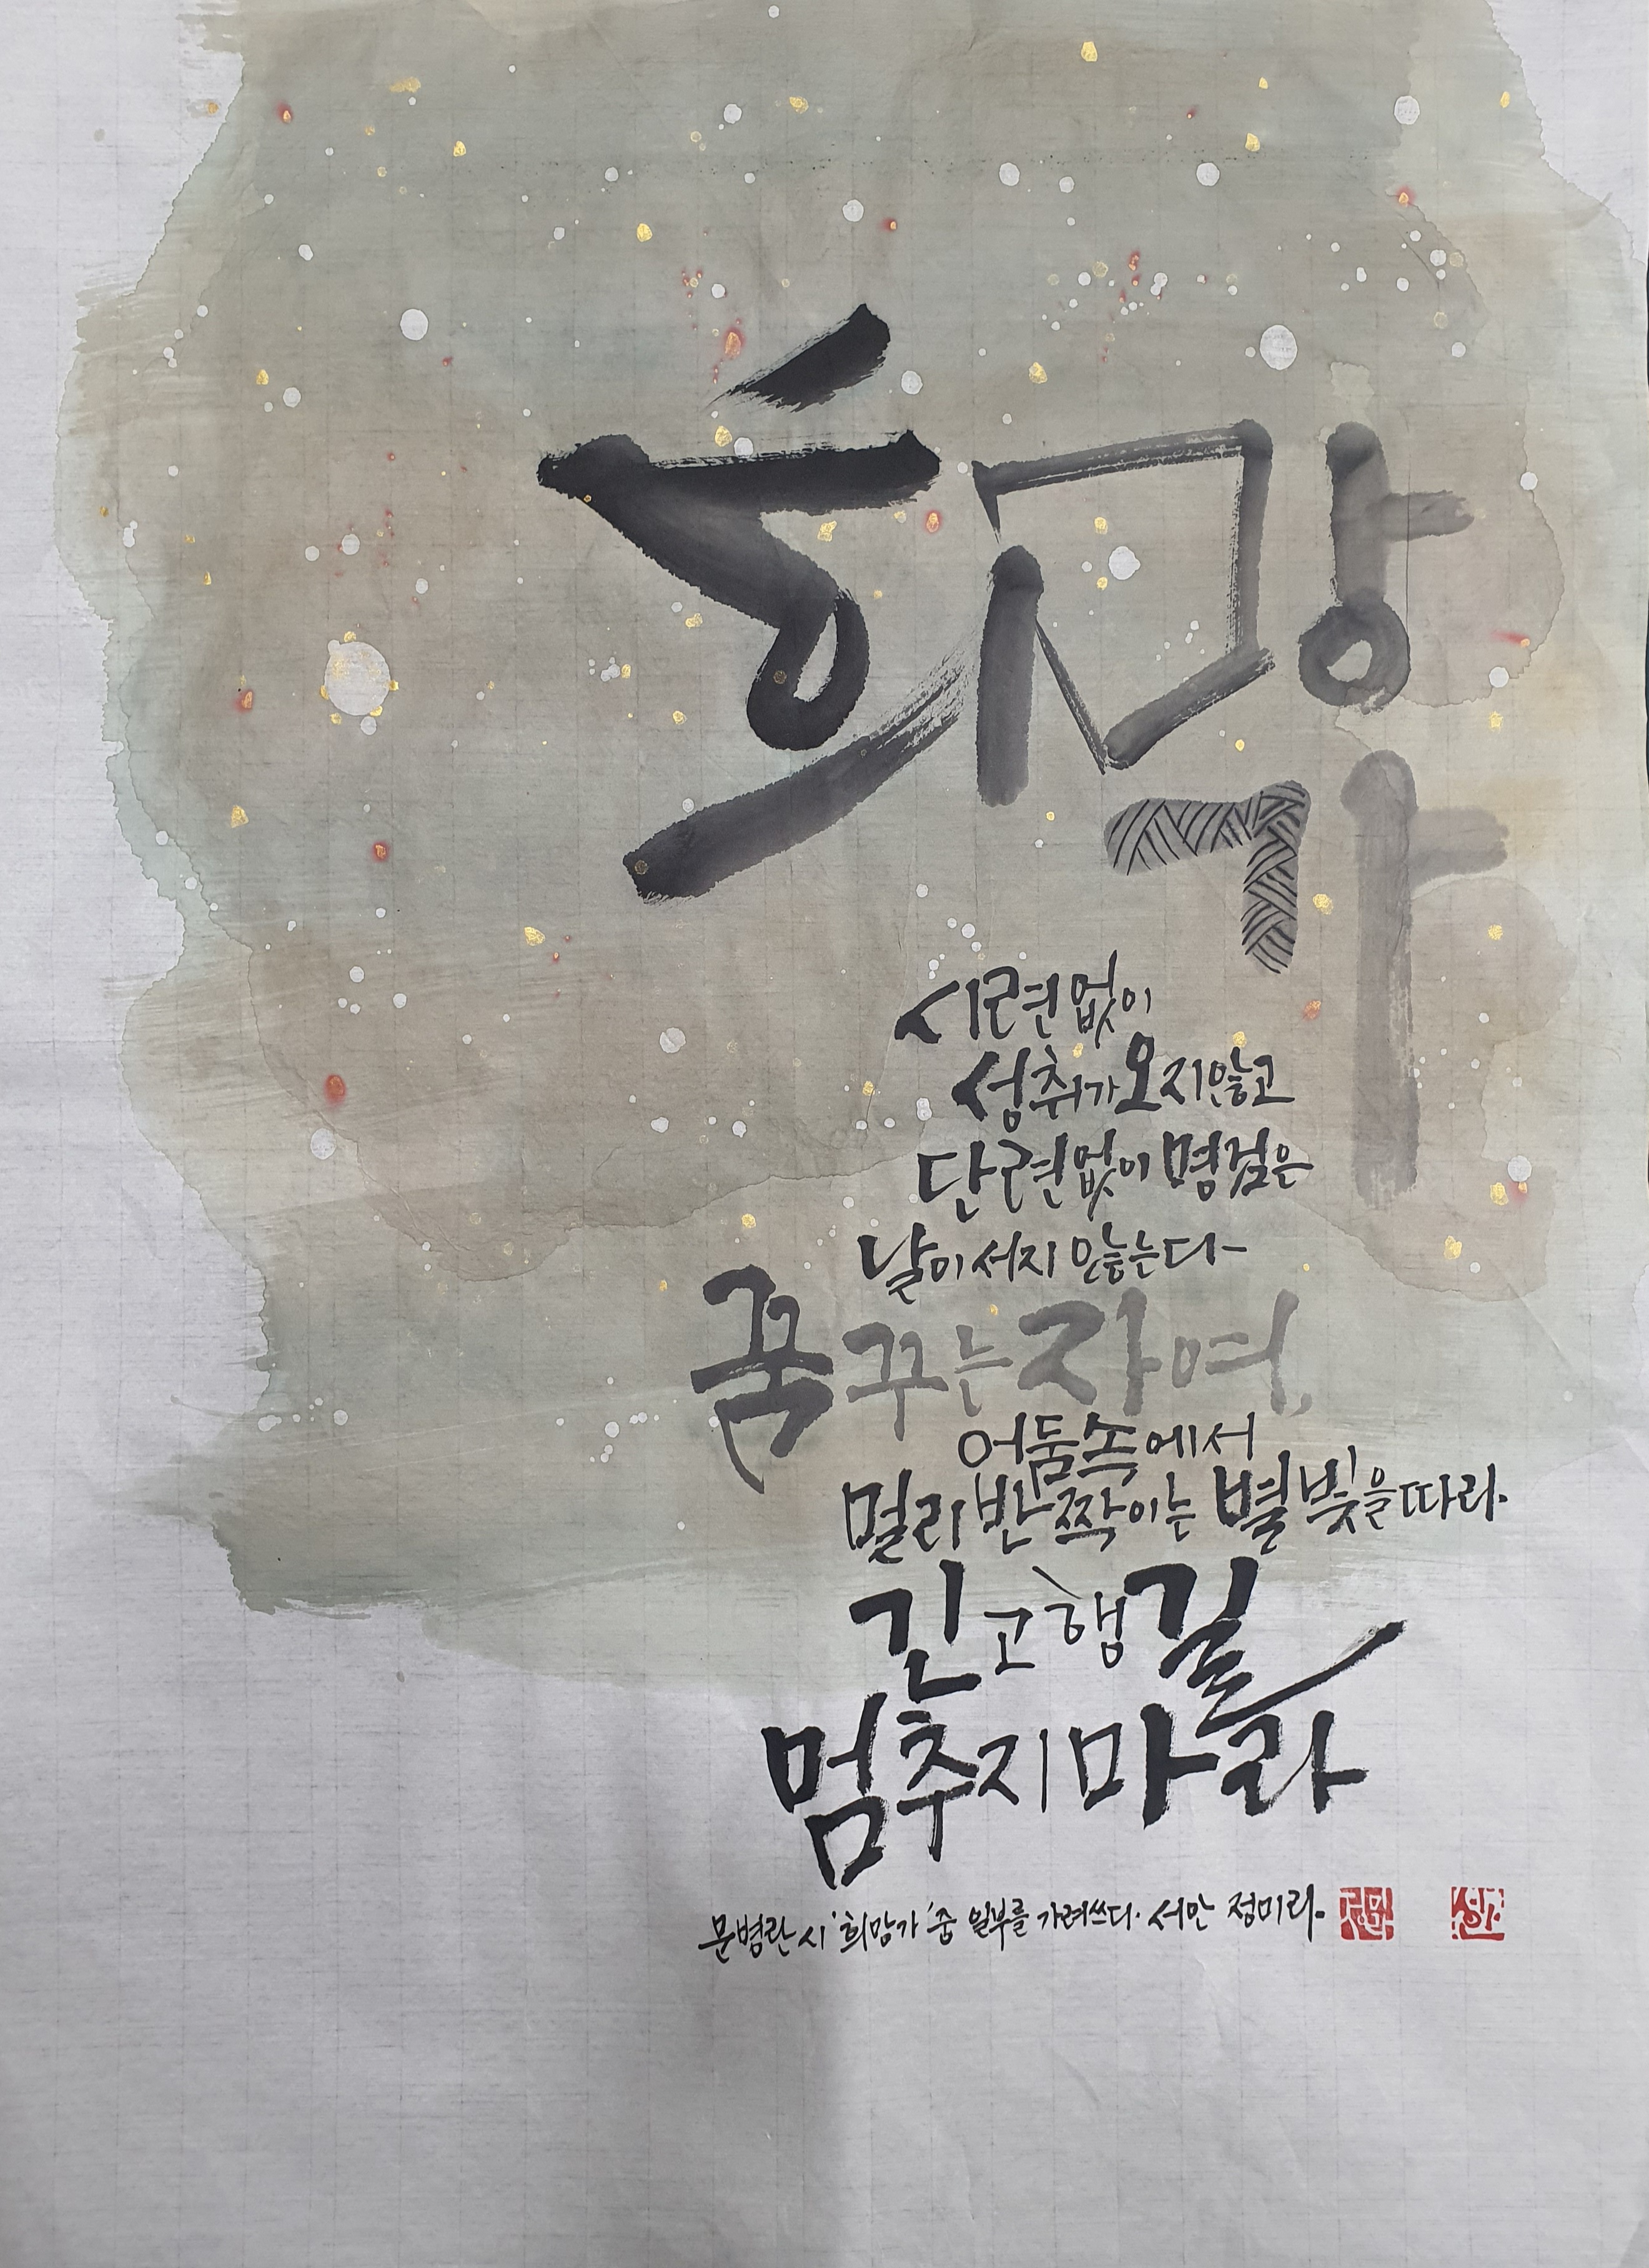 희망가
시련없이
성취가 오지않고
단련없이 명검은
날이 서지 않는다
꿈꾸는 자여,
어둠속에서
멀리 반짝이는 별빛을 따라
긴 고행길
멈추지 마라
문병란 시 '희망가' 중 일부를 가려쓰다. 서안 정미라